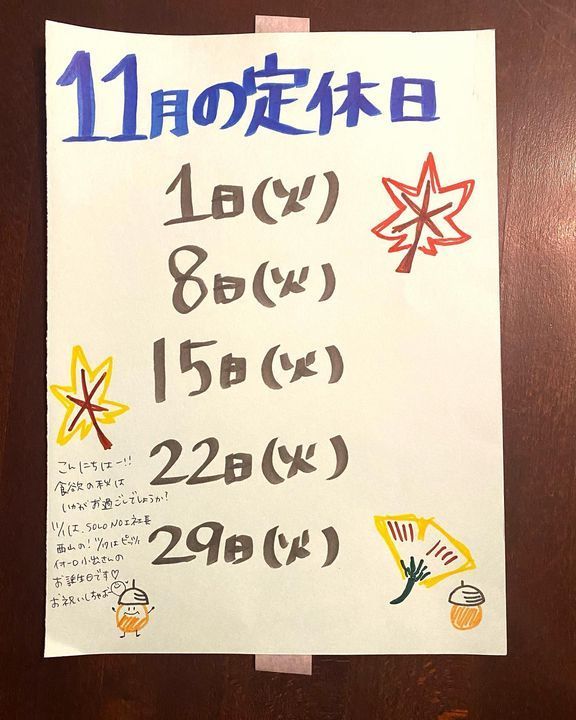 11月の定休日
1日(火)
8日(火)
15日(火)
22日(火)
29日(火)
こんにちはー!!
食欲の秋は
いかがお過ごしでしょうか?
11/1は、SOLO NOI 社長
西山の! 11/17はピッツァ
イオーロ 小出さんの
お誕生日です♡
お祝いしちゃお